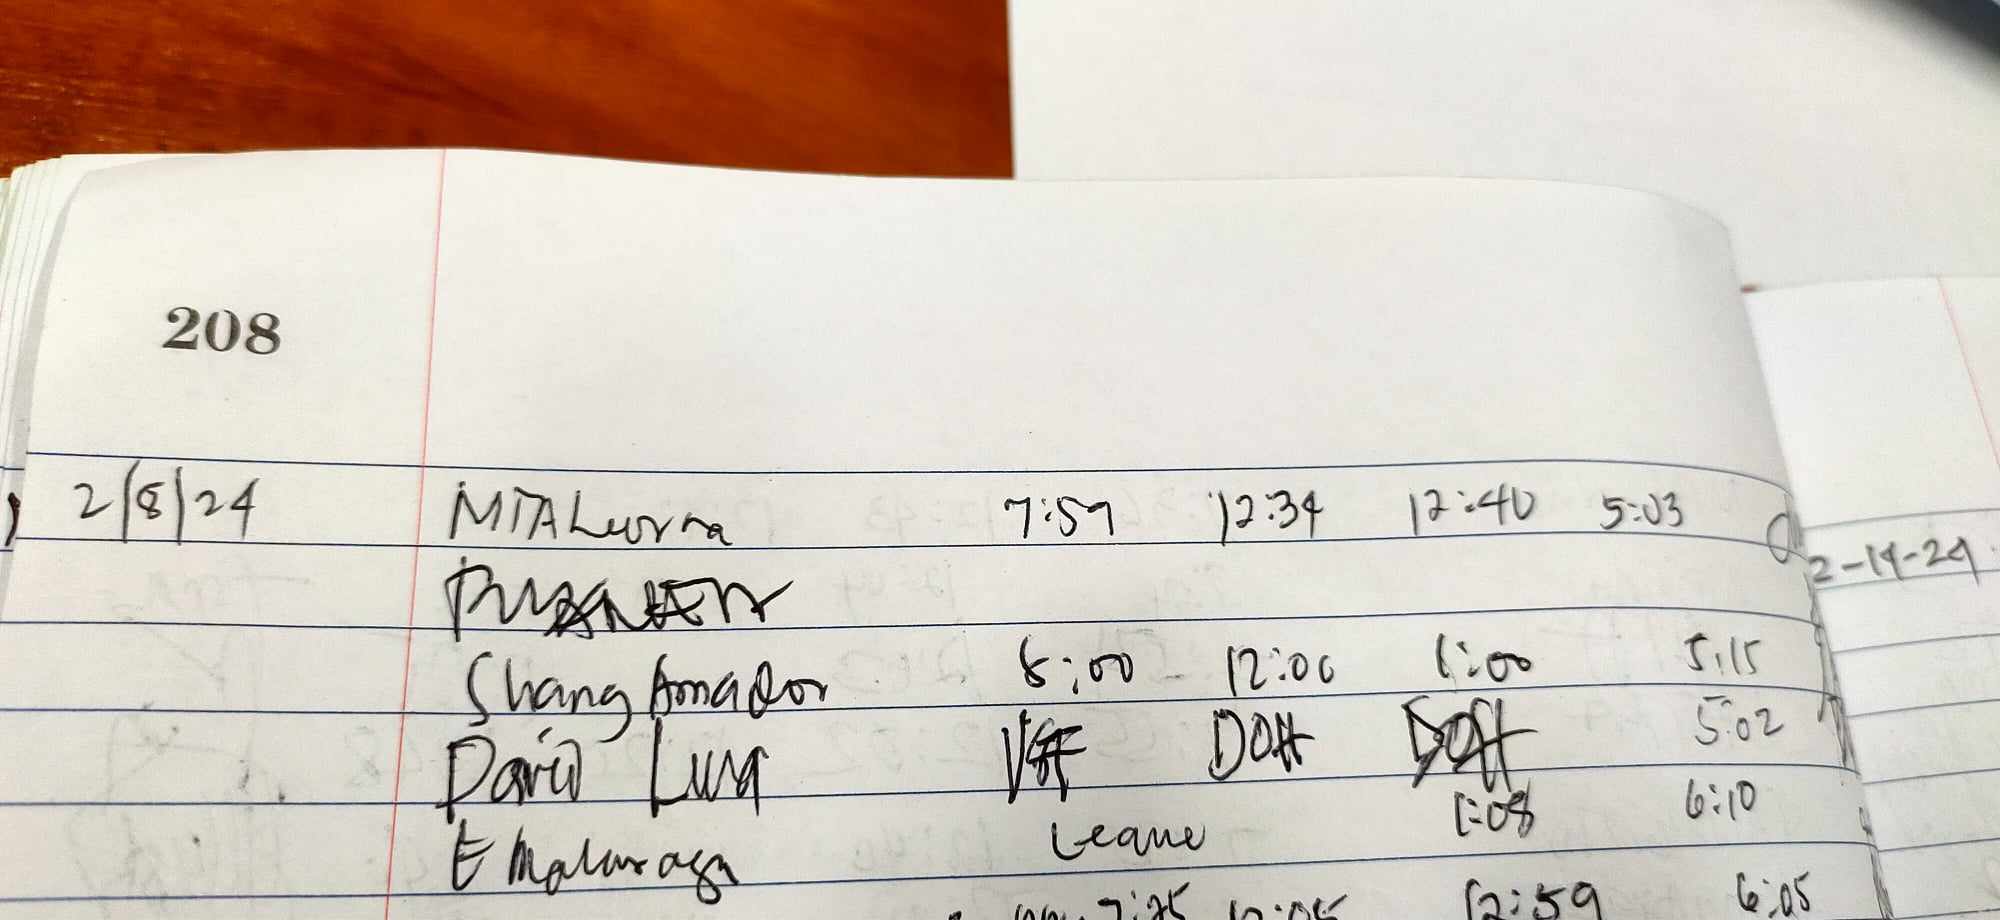 208
2/8/24 7:59 12:34 12:40 5:03
2-14-24
Shang Amador 8:00 12:00 1:00 5:15
David Luna DOff DOff 5:02
1:08 6:10
Leave
7:25 12:05 12:59 6:05